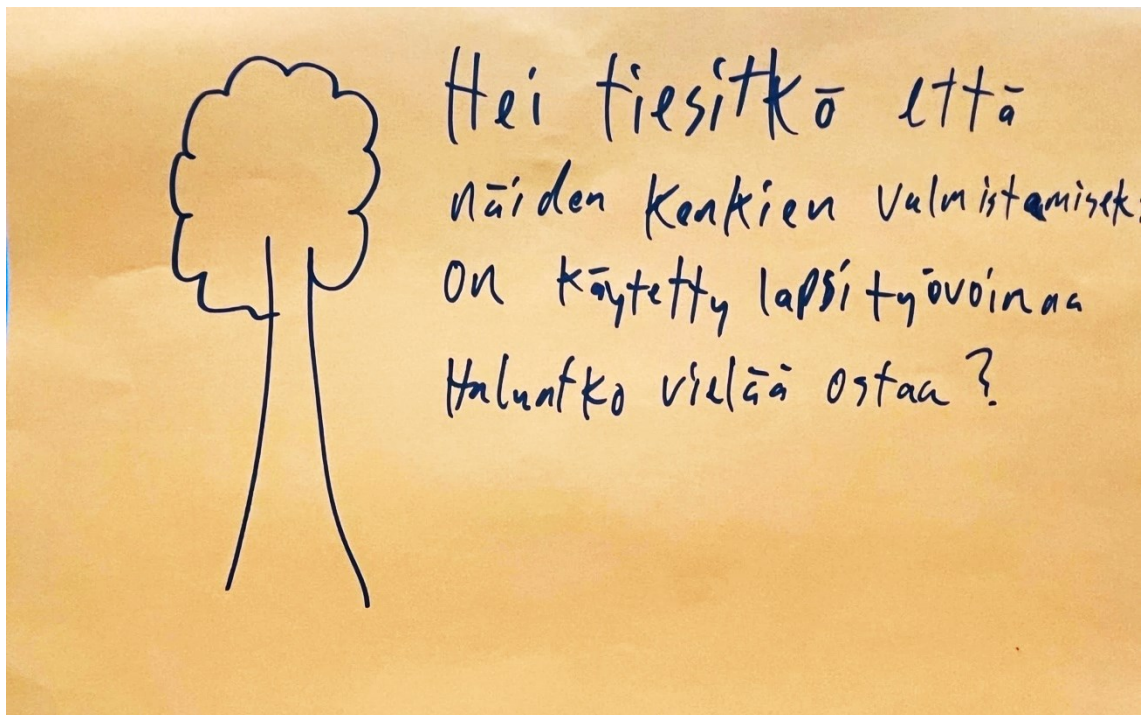 Hei tiesitkö että
näiden kenkien valmistamisek
on käytetty lapsityövoimaa
Haluatko vielää ostaa?